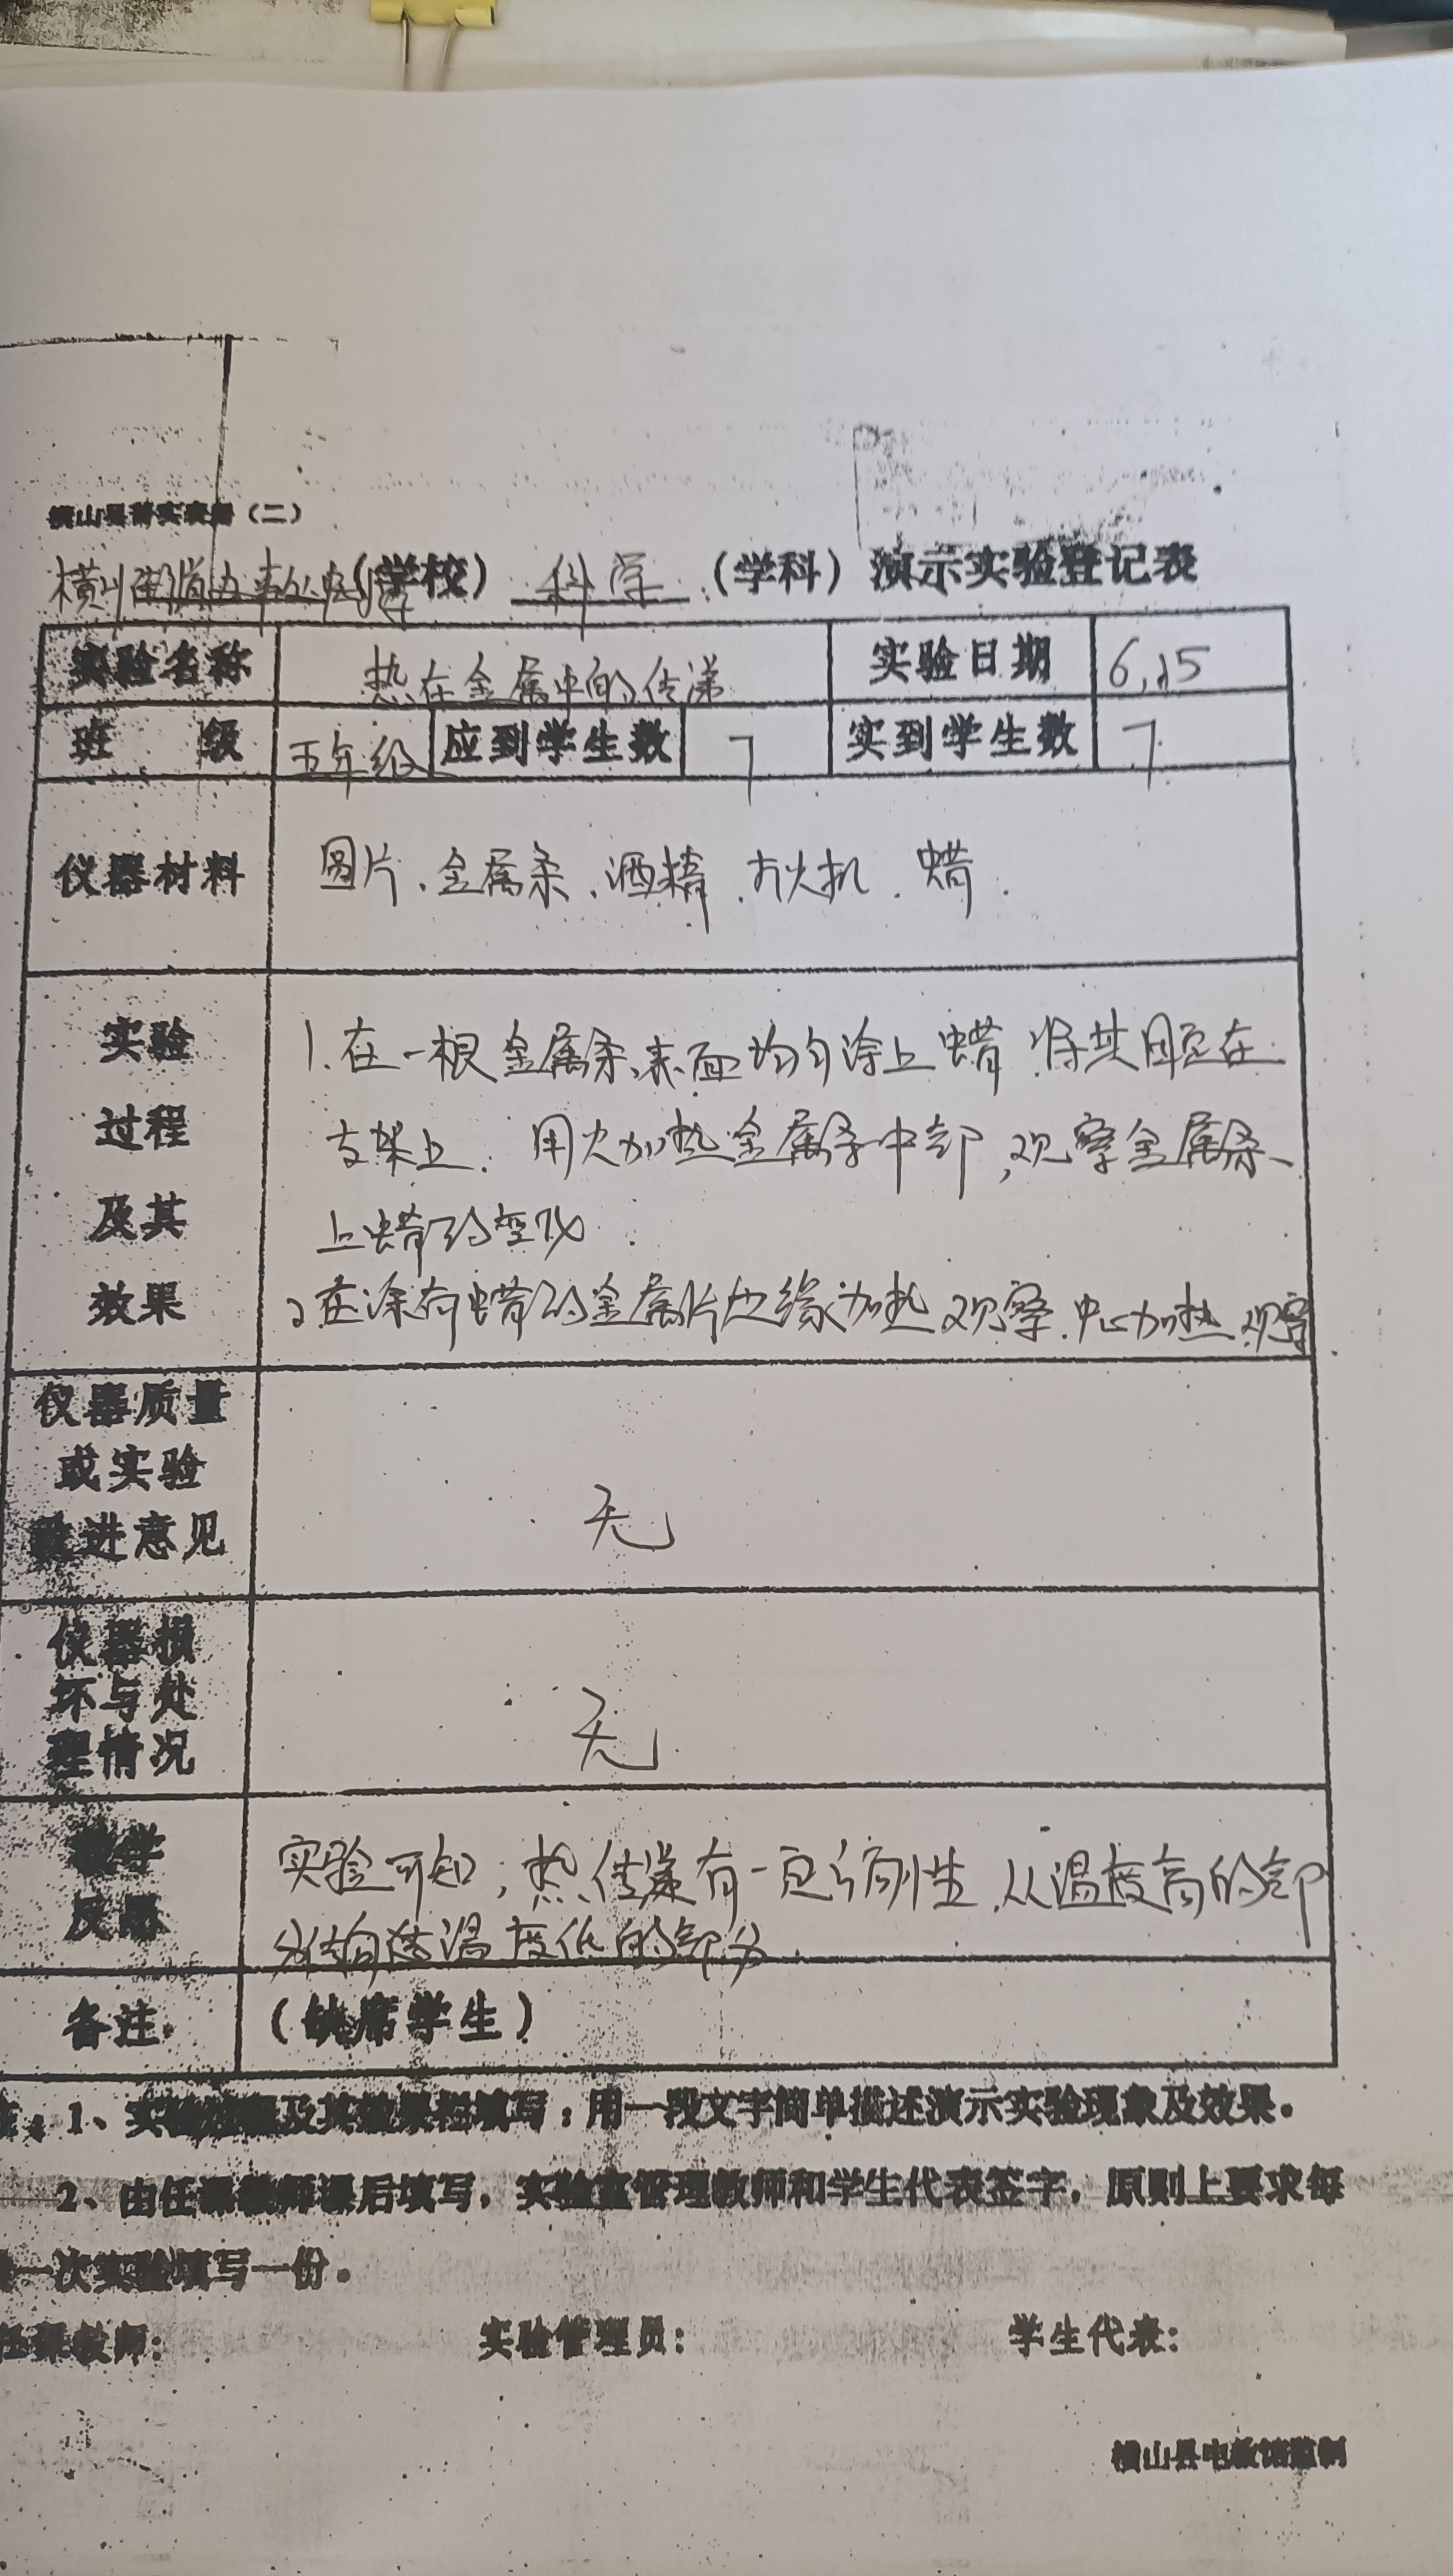 横山县教实表册（二）
横山街道办事处（学校） 科学 （学科）演示实验登记表
实验名称 热在金属中的传递 实验日期 6,15
班 级 五年级 应到学生数 7 实到学生数 7
仪器材料 图片、金属条、酒精、打火机、蜡.
实验
过程
及其
效果
1.在一根金属条表面均匀涂上蜡.将其固定在
支架上.用火加热金属条中部,观察金属条
上蜡的变化.
2在涂有蜡的金属片边缘加热观察.中心加热观察
仪器质量
或实验
改进意见
无
仪器损
坏与处
理情况
无
教学
反思
实验可知;热传递有一定 性.从温度高的部
分传向温度低的部分.
备注. （缺席学生）
注：1、实验过程及其效果栏填写：用一段文字简单描述演示实验现象及效果。
2、由任课教师课后填写，实验室管理教师和学生代表签字，原则上要求每
一次实验填写一份。
任课教师: 实验管理员: 学生代表:
横山县电教馆监制